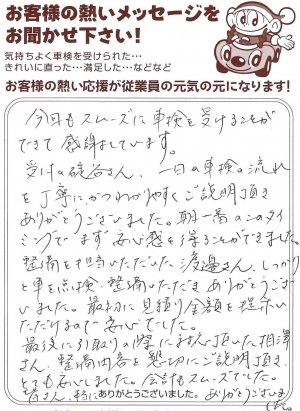 お客様の熱いメッセージを
お聞かせ下さい！
気持ちよく車検を受けられた…
きれいに直った…満足した…などなど
お客様の熱い応援が従業員の元気の元になります！
今回もスムーズに車検を受けることが
できて感謝しています。
受付の碇谷さん、一日の車検の流れ
を丁寧にかつわかりやすくご説明頂き
ありがとうございました。朝一番のこのタイ
ミングでまず安心感を得ることができました。
整備を担当いただいた渡邊さん、しっかり
と車を点検、整備いただきありがとうござい
ました。最初に見積り金額を提示い
ただけるので安心でした。
最後に引取りの際に対応頂いた相澤
さん、整備内容を懇切にご説明頂き、
とても良いでした。会計もスムーズでした。
皆さん、特にありがとうございました。ありがとうございま
した。